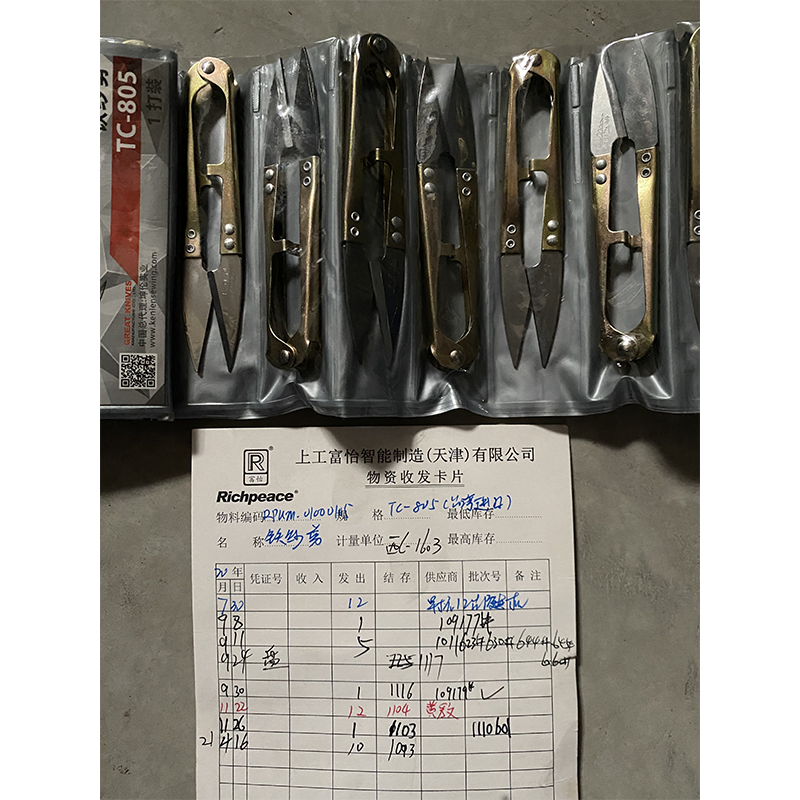 TC-805
1打装
GREAT KNIVES
中国总代理:坤伦实业
www.kenlensewing.com
R
富怡
®
Richpeace®
上工富怡智能制造(天津)有限公司
物资收发卡片
物料编码 规格 TC-805 最低库存
名称 铁纱剪 计量单位 最高库存
年 月 日 凭证号 收入 发出 结存 供应商 批次号 备注
7 30 12
9 8 1 109177#
9 11 5
9 24 盘 1117
9 30 1 1116 109179# ✓
11 22 12 1104
11 26 1 1103 111060
21 4 16 10 1093